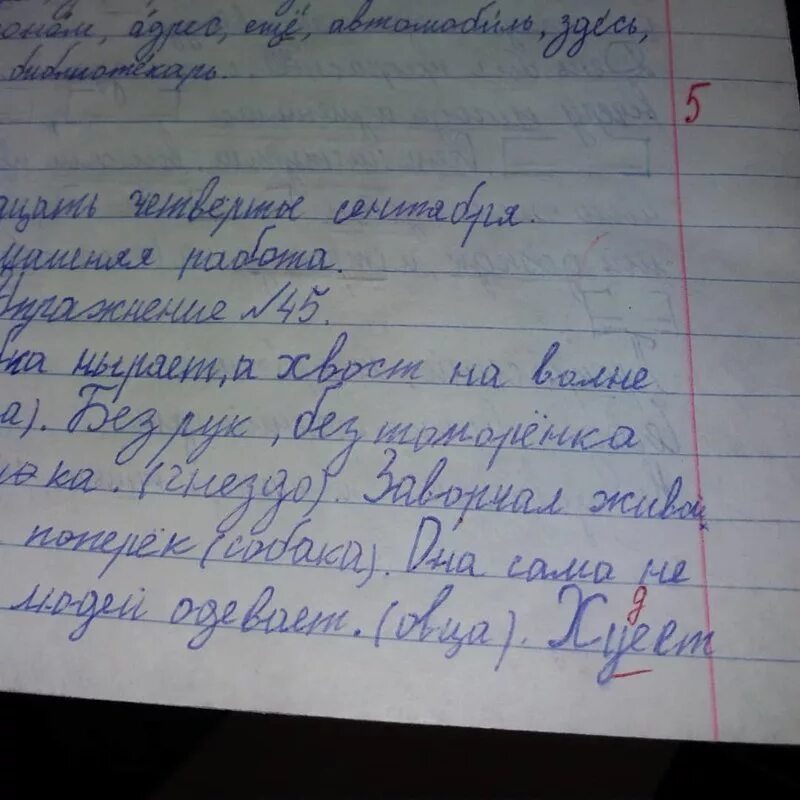 онам, адрес, ещё, автомобиль, здесь,
библиотекарь.
5
дцать четвёртое сентября.
машняя работа.
Упражнение №45.
ка ныряет, а хвост на волне
а). Без рук, без топорёнка
ка. (гнездо). Заворчал живой
поперёк (собака). Она сама не
людей одевает. (овца). Хуест
д